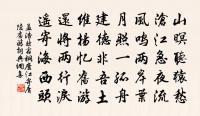 山暝聽猿愁
滄江急夜流
風鳴兩岸葉
月照一孤舟
建德非吾土
維揚憶舊游
還將兩行淚
遙寄海西頭
孟浩然宿桐廬江寄廣
陵舊游詩詞典網集